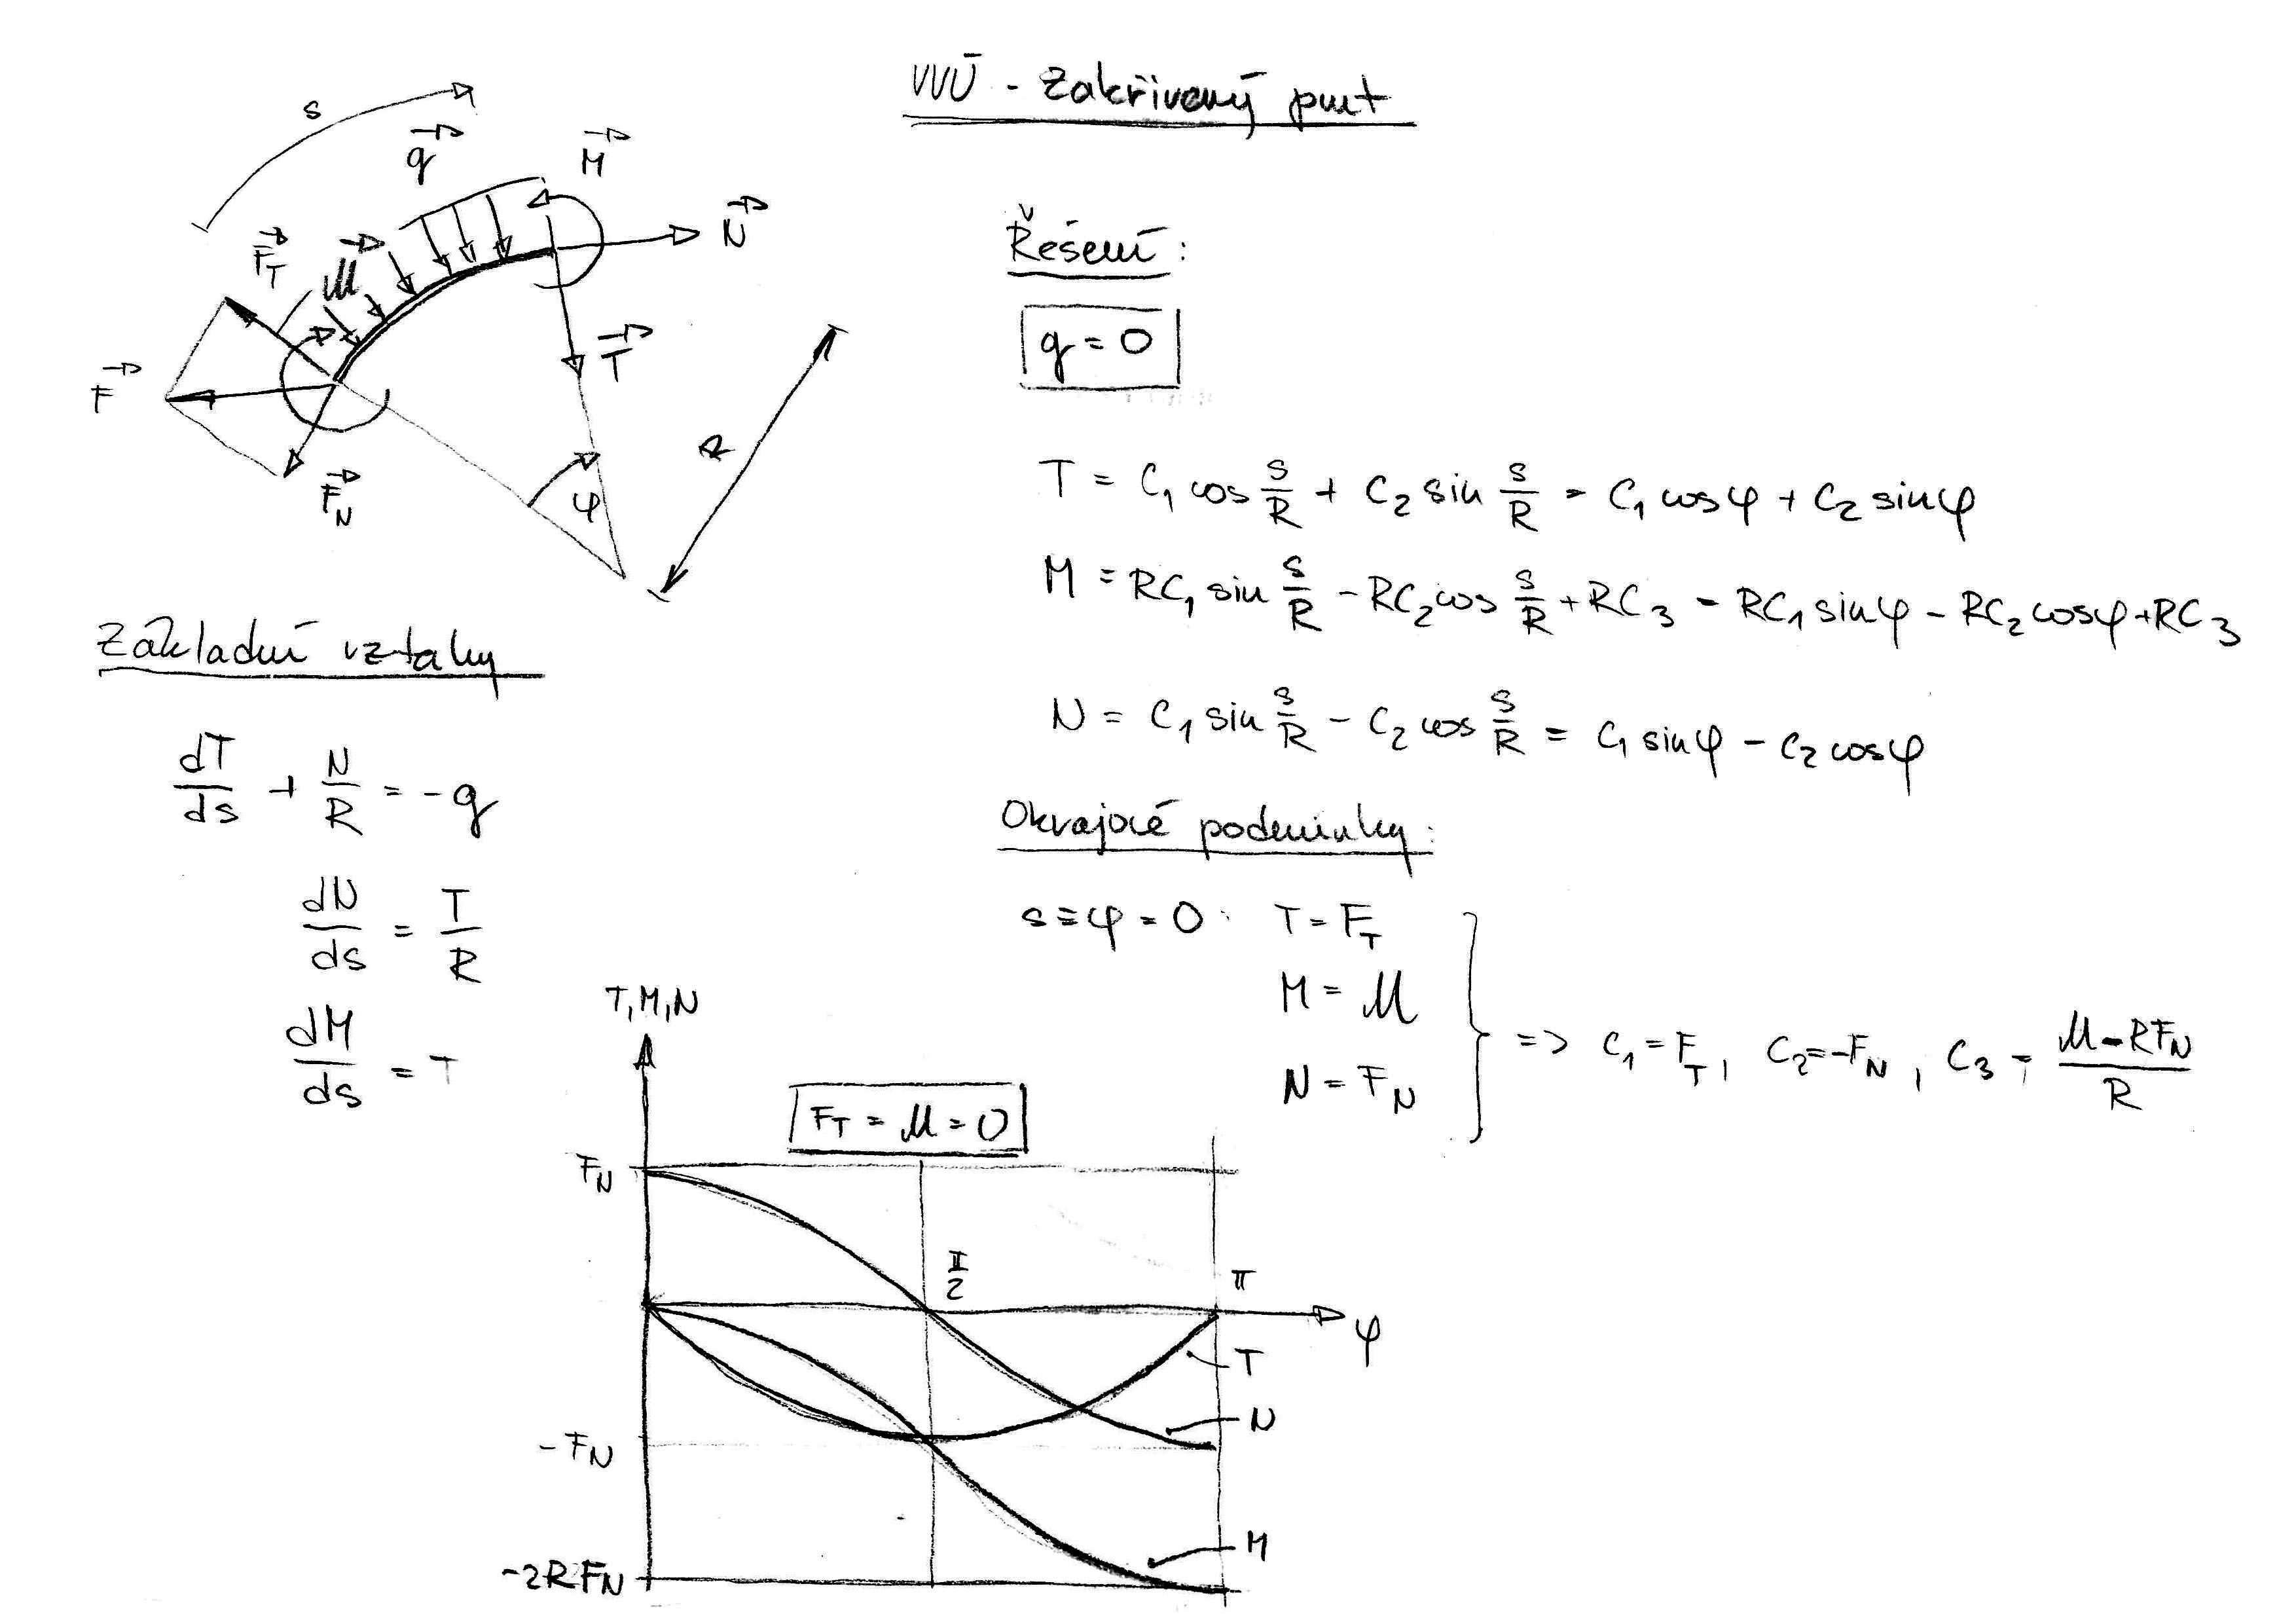 VVÚ - Zakřivený prut
s
q
M
N
F_T
M
T
F
F_N
R
φ
Základní vztahy
dT/ds + N/R = -q
dN/ds = T/R
dM/ds = T
Řešení:
q = 0
T = C₁ cos s/R + C₂ sin s/R = C₁ cosφ + C₂ sinφ
M = RC₁ sin s/R - RC₂ cos s/R + RC₃ = RC₁ sinφ - RC₂ cosφ + RC₃
N = C₁ sin s/R - C₂ cos s/R = C₁ sinφ - C₂ cosφ
Okrajové podmínky:
s ≡ φ = 0: T = F_T
M = M
N = F_N
=> C₁ = F_T, C₂ = -F_N, C₃ = (M - RF_N)/R
T, M, N
F_T = M = 0
F_N
π/2
π
φ
T
N
-F_N
M
-2RF_N